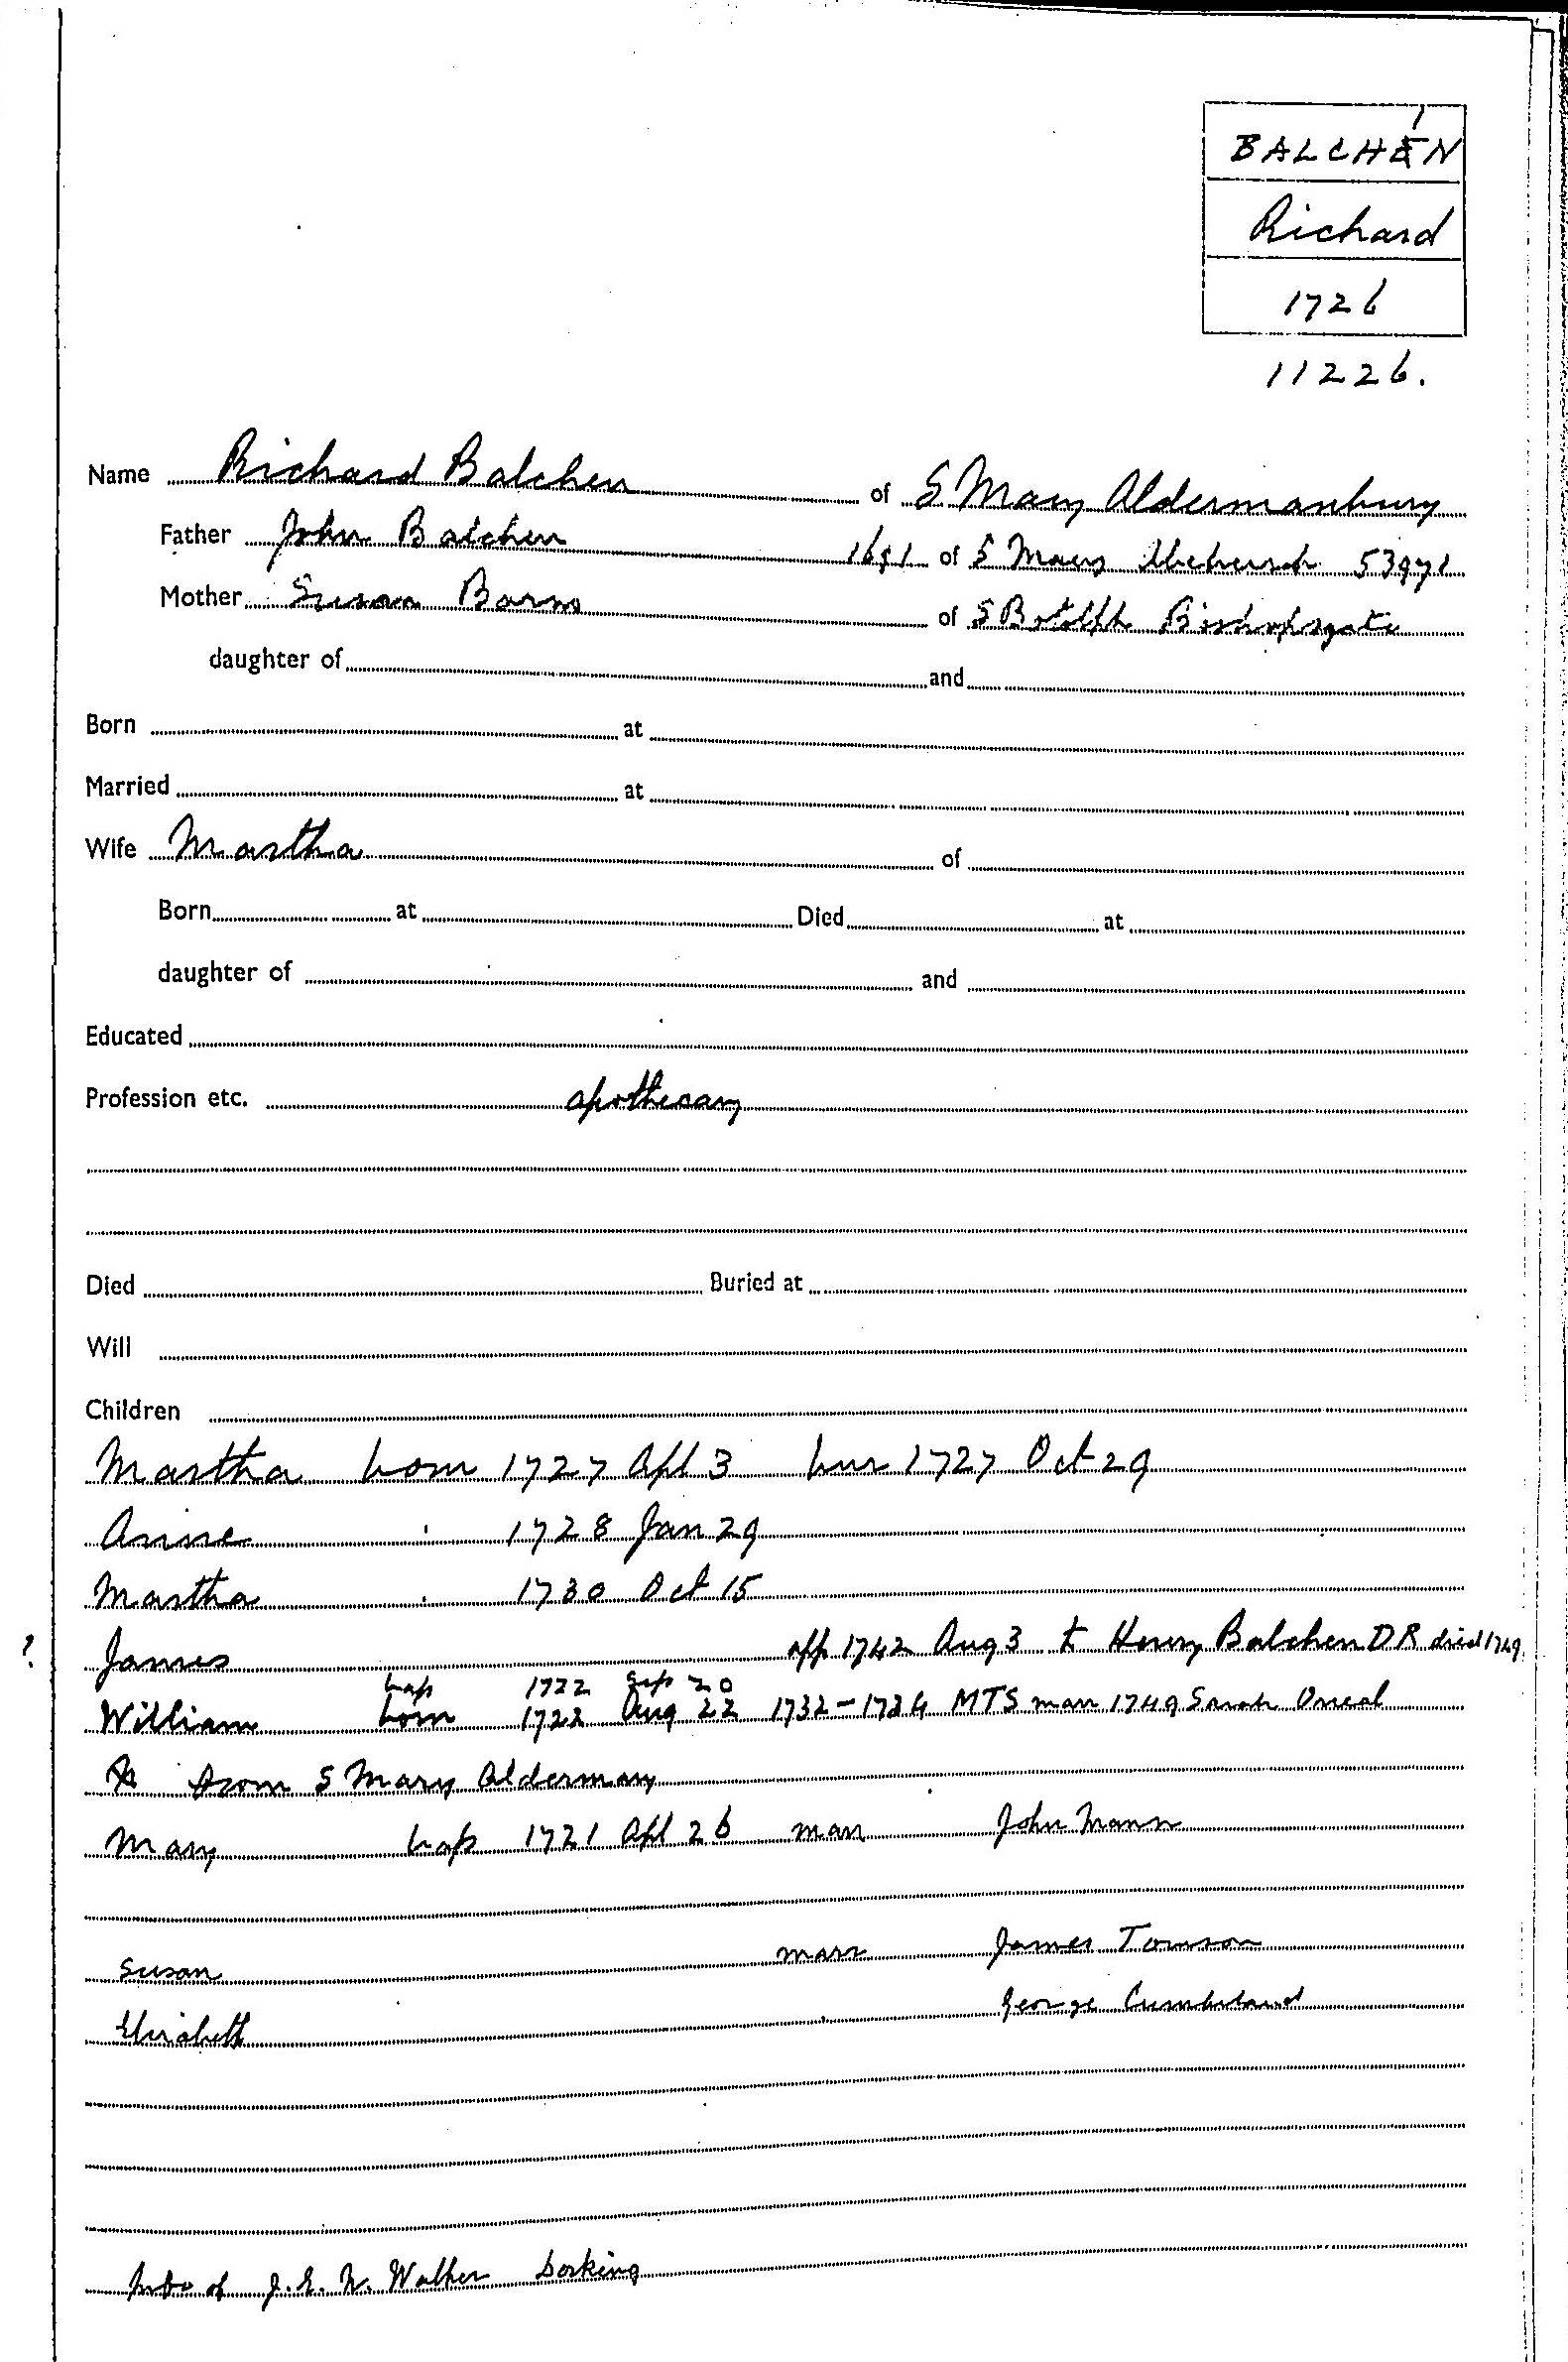 BALCHEN
Richard
1726
11226.
Name Richard Balchen of S Mary Aldermanbury
Father John Balchen 1691 of S Mary 53971
Mother Susan Barns of S Botolph Bishopsgate
daughter of and
Born at
Married at
Wife Martha of
Born at Died at
daughter of and
Educated
Profession etc. apothecary
Died Buried at
Will
Children
Martha born 1727 Apl 3 bur 1727 Oct 29
Anne 1728 Jan 29
Martha 1730 Oct 15
? James app 1742 Aug 3 to Henry Balchen DR died 1749
bap 1722 Sep 20
William born 1722 Aug 22 1732-1734 MTS marr 1749 Sarah Oneal
from S Mary Alderman
Mary bap 1721 Apl 26 marr John Mann
Susan marr James Tomson
Elizabeth George Cumberland
Info of J. E. W. Walker Dorking